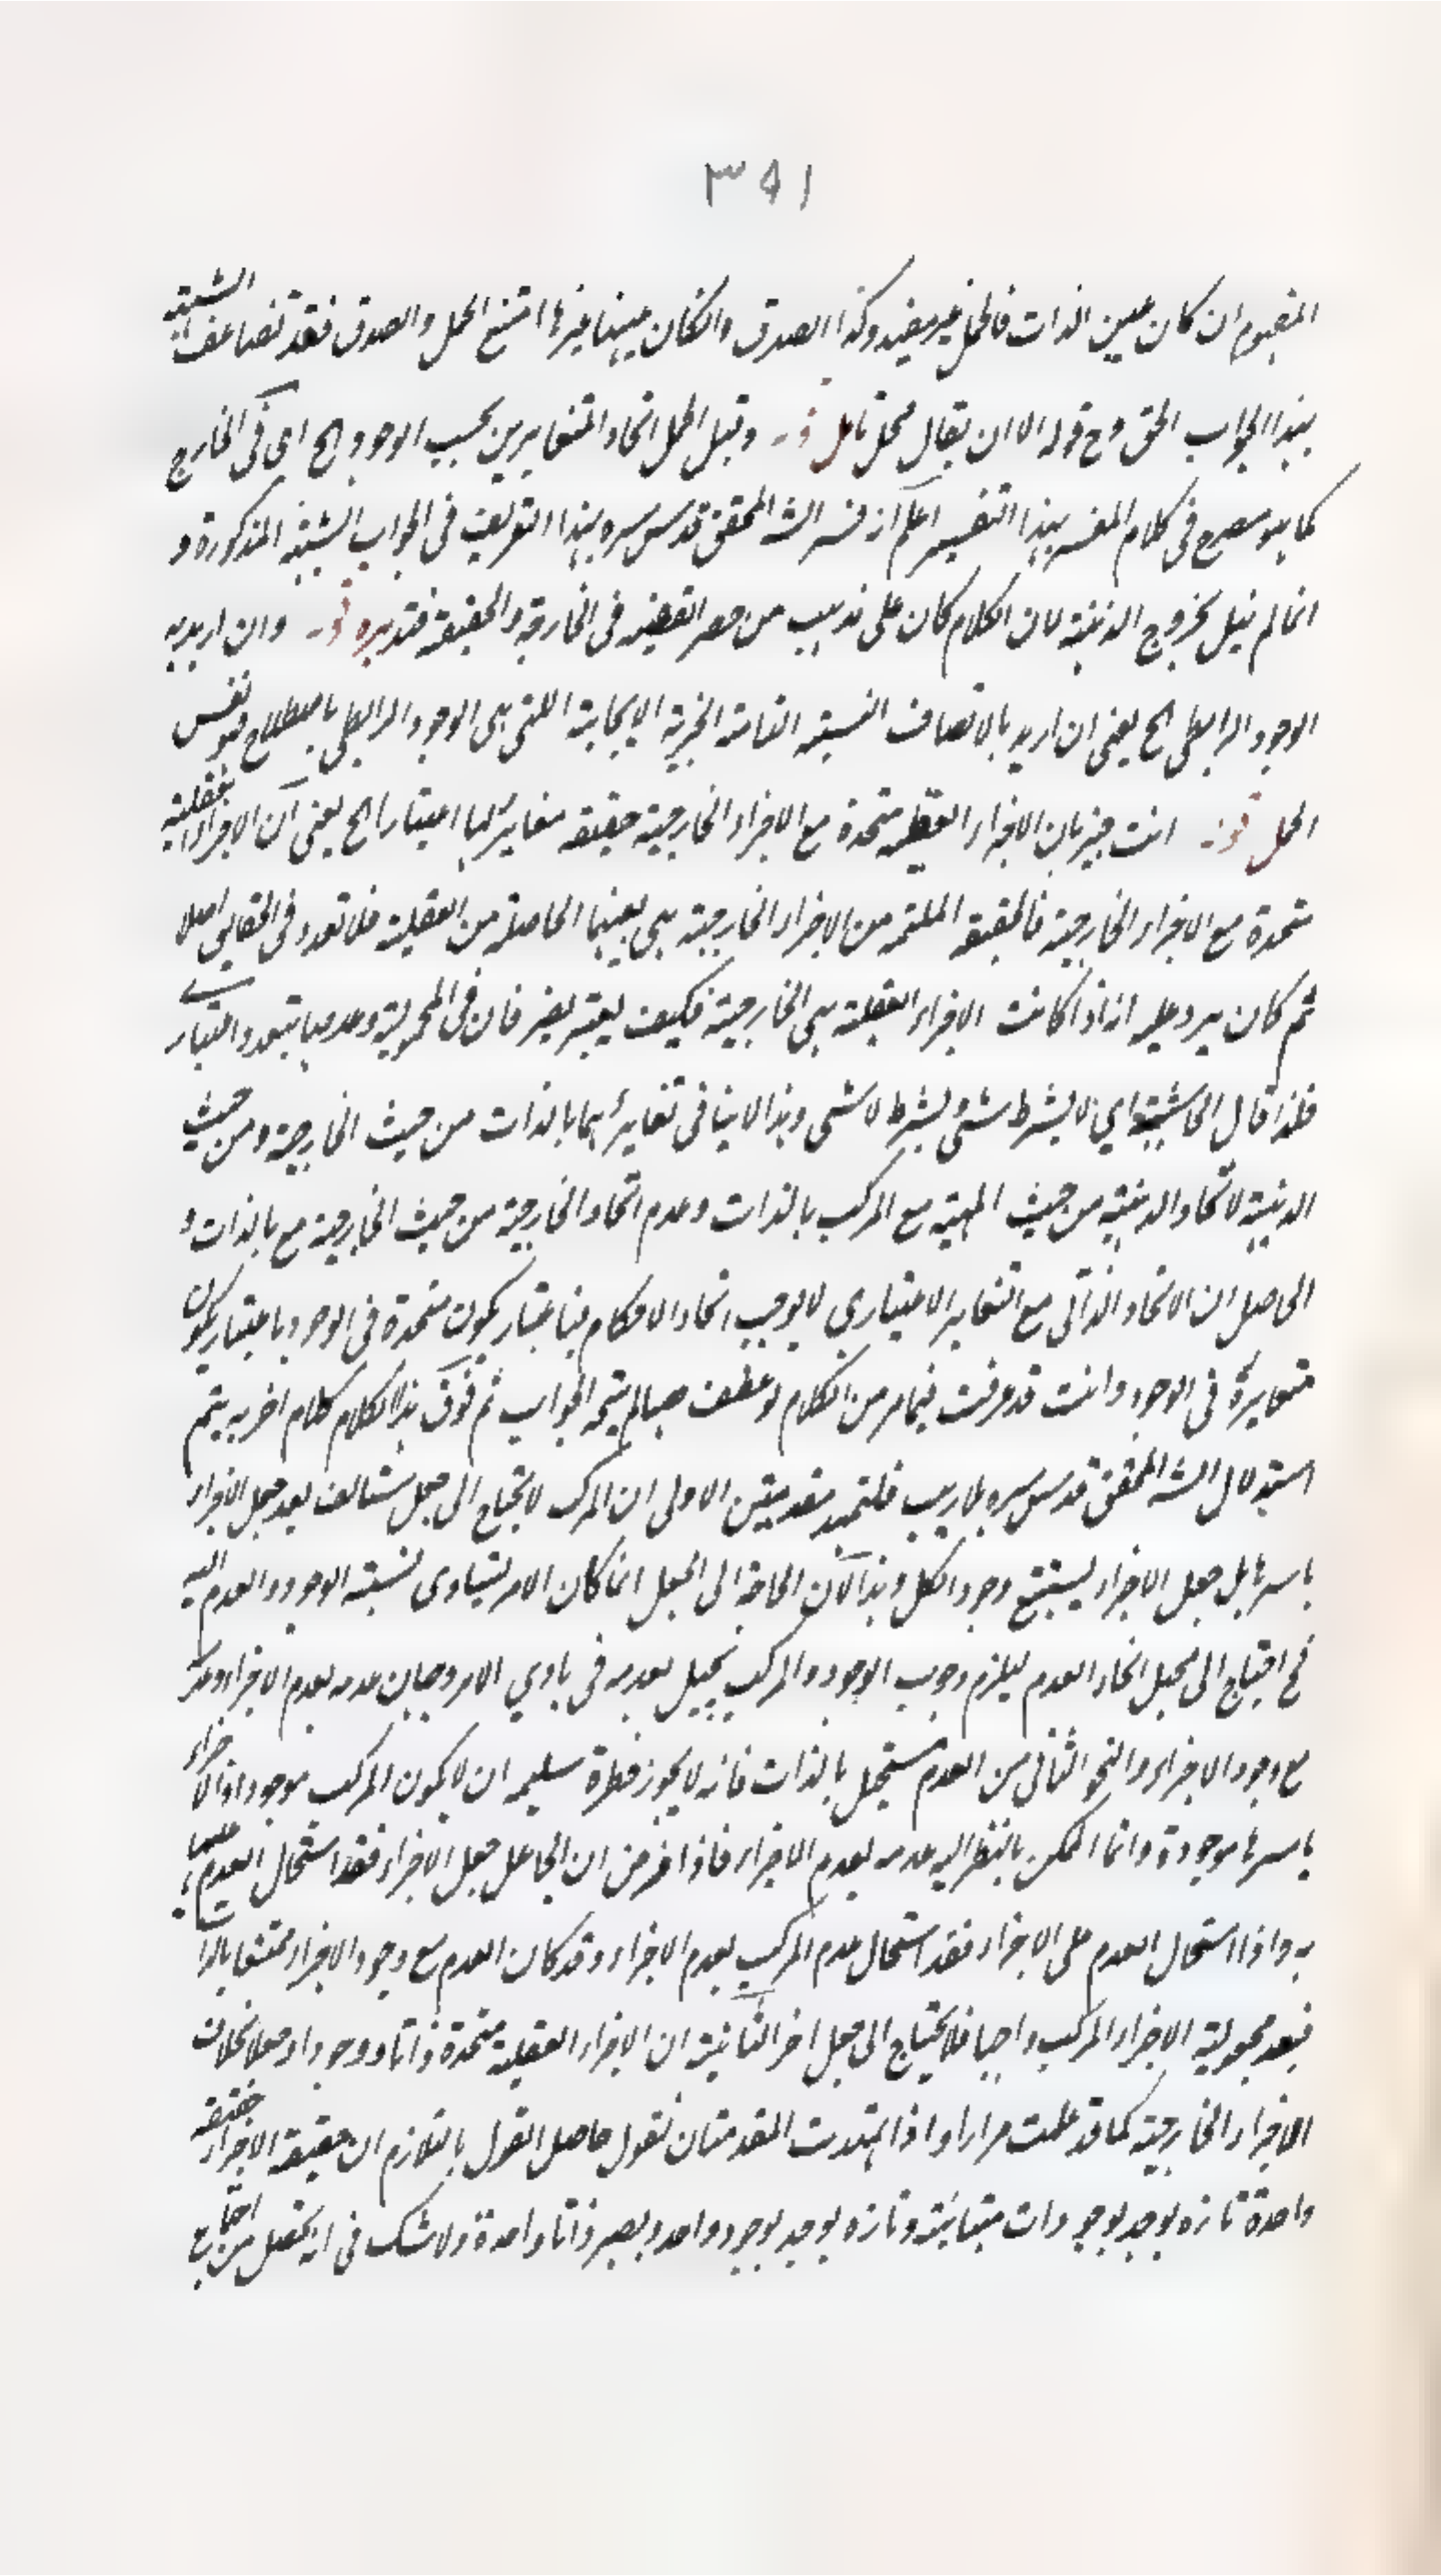 ٣٩١
المفهوم ان كان عين الذات فالحمل غير مفيد وكذا الصدق وان كان مبينا غيرها امتنع الحمل والصدق فقد تضاعف الشبهة
بهذا الجواب الحق وح قوله الا ان يقال محل تامل قوله وقيل الحمل اتحاد المتغايرين بحسب الوجود الخ اى فى الخارج
كما هو مصرح فى كلام المفسر بهذا التفسير اعلم انه فسر الشه المحقق قدس سره بهذا التعريف فى الجواب الشبهة المذكورة و
انما لم يبل بخروج الذهنية لان الكلام كان على مذهب من حصر القضية فى الخارجة والحقيقة فتدبره قوله وان اريد به
الوجود الرابطى الخ يعنى ان اريد بالاتصاف النسبة التامة الخبرية الايجابية اللتى هى الوجود الرابطى باصطلاح فهو نفس
الحمل قوله انت خبير بان الاجزاء العقلية متحدة مع الاجزاء الخارجية حقيقة مغايرة لها اعتبارا الخ يعنى ان الاجزاء العقلية
متحدة مع الاجزاء الخارجية فالحقيقة الملتئمة من الاجزاء الخارجية هى بعينها الحاصلة من العقلية فلا تعدد فى الحقايق اصلا
ثم كان يرد عليه انه اذا كانت الاجزاء العقلية هى الخارجية فكيف يعتبر فان فى المحمولية وعدمها بتعدد اعتبارى
فلذا قال الحاشية اي لا بشرط شئ وبشرط لا شى وهذا لا ينافى تغايرهما بالذات من حيث الخارجية ومن حيث
الذهنية لاتحاد الذهنية من حيث المهية مع المركب بالذات وعدم اتحاد الخارجية من حيث الخارجية مع بالذات و
الحاصل ان الاتحاد الذاتى مع التغاير الاعتباري لا يوجب اتحاد الاحكام فباعتبار يكون متحدة فى الوجود باعتبار يكون
متغايرة فى الوجود وانت قد عرفت فيما مر من الكلام لو عطف صبا لم يتم الجواب ثم فوق هذا الكلام كلام اخر به يتم
استدلال الشه المحقق قدس سره بلا ريب فلتمهد مقدمتين الاولى ان المركب لا يحتاج الى جعل مستانف بعد جعل الاجزاء
باسرها بل جعل الاجزاء يستتبع وجود الكل وهذا لان الحاجة الى الجعل انما كان الامر بتساوى نسبة الوجود والعدم اليه
فح احتياج الى بجعل انحاء العدم ليلزم وجوب الوجود والمركب يجيل بعدمه فى بادي الامر وجهان عدمه بعدم الاجزاء وعدمه
مع وجود الاجزاء والنحو الثانى من العدم مستحيل بالذات فانه لا يجوز فطرة سليمه ان لا يكون المركب موجودا والاجزاء
باسرها موجودة وانما الممكن بالنظر اليه عدمه بعدم الاجزاء فاذا فرض ان الجاعل جعل الاجزاء فقد استحال العدم عليها
به واذا استحال العدم على الاجزاء فقد استحال عدم المركب بعدم الاجزاء وقد كان العدم مع وجود الاجزاء ممتنعا بالذات
فبعد مجعولية الاجزاء المركب واجبا فلا يحتاج الى جعل اخر الثانية ان الاجزاء العقلية متحدة ذاتا ووجودا وجعلا بخلاف
الاجزاء الخارجية كما قد علمت مرارا واذا تمهدت المقدمتان نقول حاصل القول بالتلازم ان حقيقة الاجزاء حقيقة
واحدة تارة يوجد بوجودات متباينة وتارة يوجد بوجود واحد ويصير ذاتا واحدة ولا شك فى انه يحصل من اجتماع